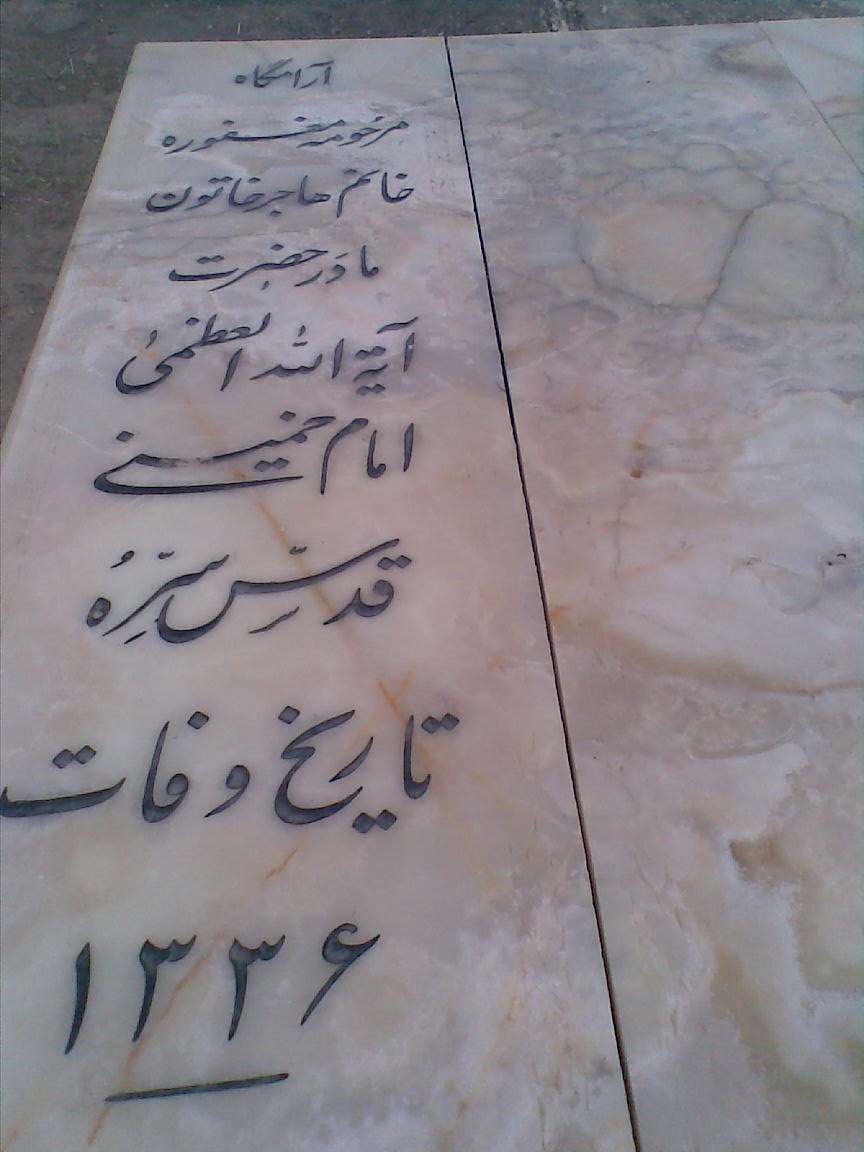 آرامگاه
مرحومه مغفوره
خانم هاجر خاتون
مادَر حضرت
آیة اللہ العظمیٰ
امام خمینے
قدّسِ سِرّهُ
تاریخ وفات
۱۳۳۶